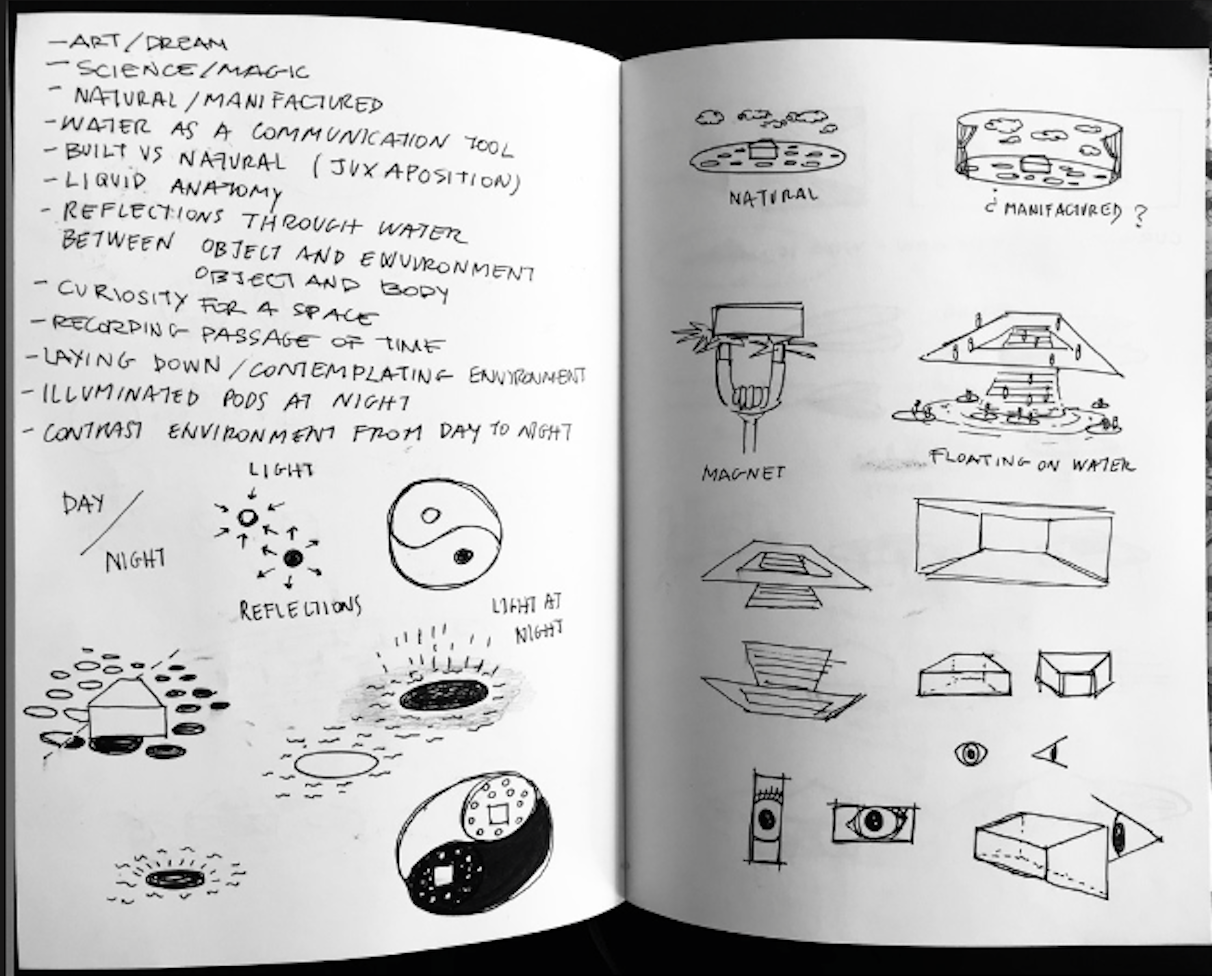 - ART/DREAM
- SCIENCE/MAGIC
- NATURAL/MANIFACTURED
- WATER AS A COMMUNICATION TOOL
- BUILT VS NATURAL (JUXAPOSITION)
- LIQUID ANATOMY
- REFLECTIONS THROUGH WATER
BETWEEN OBJECT AND EWUVRONMENT
OBJECT AND BODY
- CURIOSITY FOR A SPACE
- RECORDING PASSAGE OF TIME
- LAYING DOWN/CONTEMPLATING ENVIRONMENT
- ILLUMINATED PODS AT NIGHT
- CONTRAST ENVIRONMENT FROM DAY TO NIGHT
LIGHT
DAY /
NIGHT
REFLECTIONS
LIGHT AT
NIGHT
NATURAL
¿ MANIFACTURED ?
MAGNET
FLOATING ON WATER